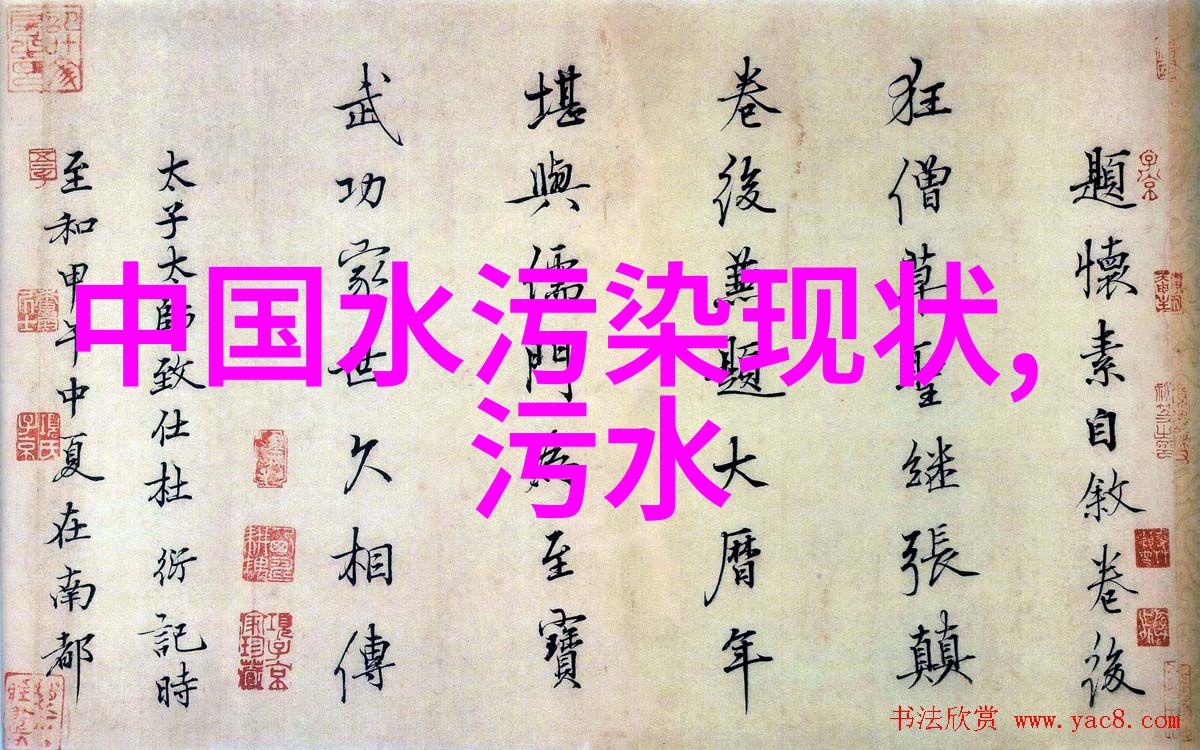 中国水污染现状,
污水
題懷素自敘卷後
狂僧草聖継張顛
卷後兼題大曆年
堪與儒門為至寶
武功家世久相傳
太子太師致仕杜衍記時
至和甲午中夏在南都
子京
項氏子京
項子京家珍藏
书法欣赏 www.yac8.com